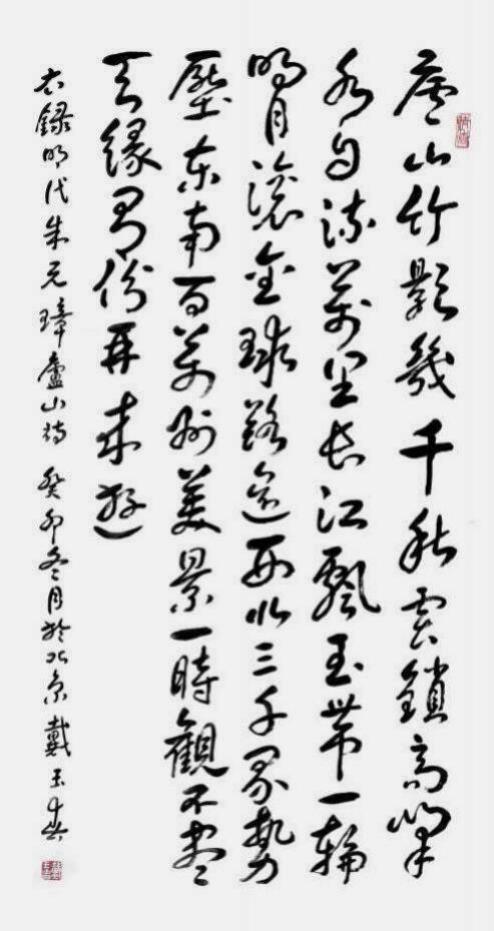 廬山竹影幾千秋雲鎖高峰
水自流萬里长江飄玉帶一輪
明月滾金球路遥西北三千界勢
壓东南百萬州美景一時觀不盡
天緣有份再来遊
右錄明代朱元璋廬山詩 癸卯冬月於北京 戴玉